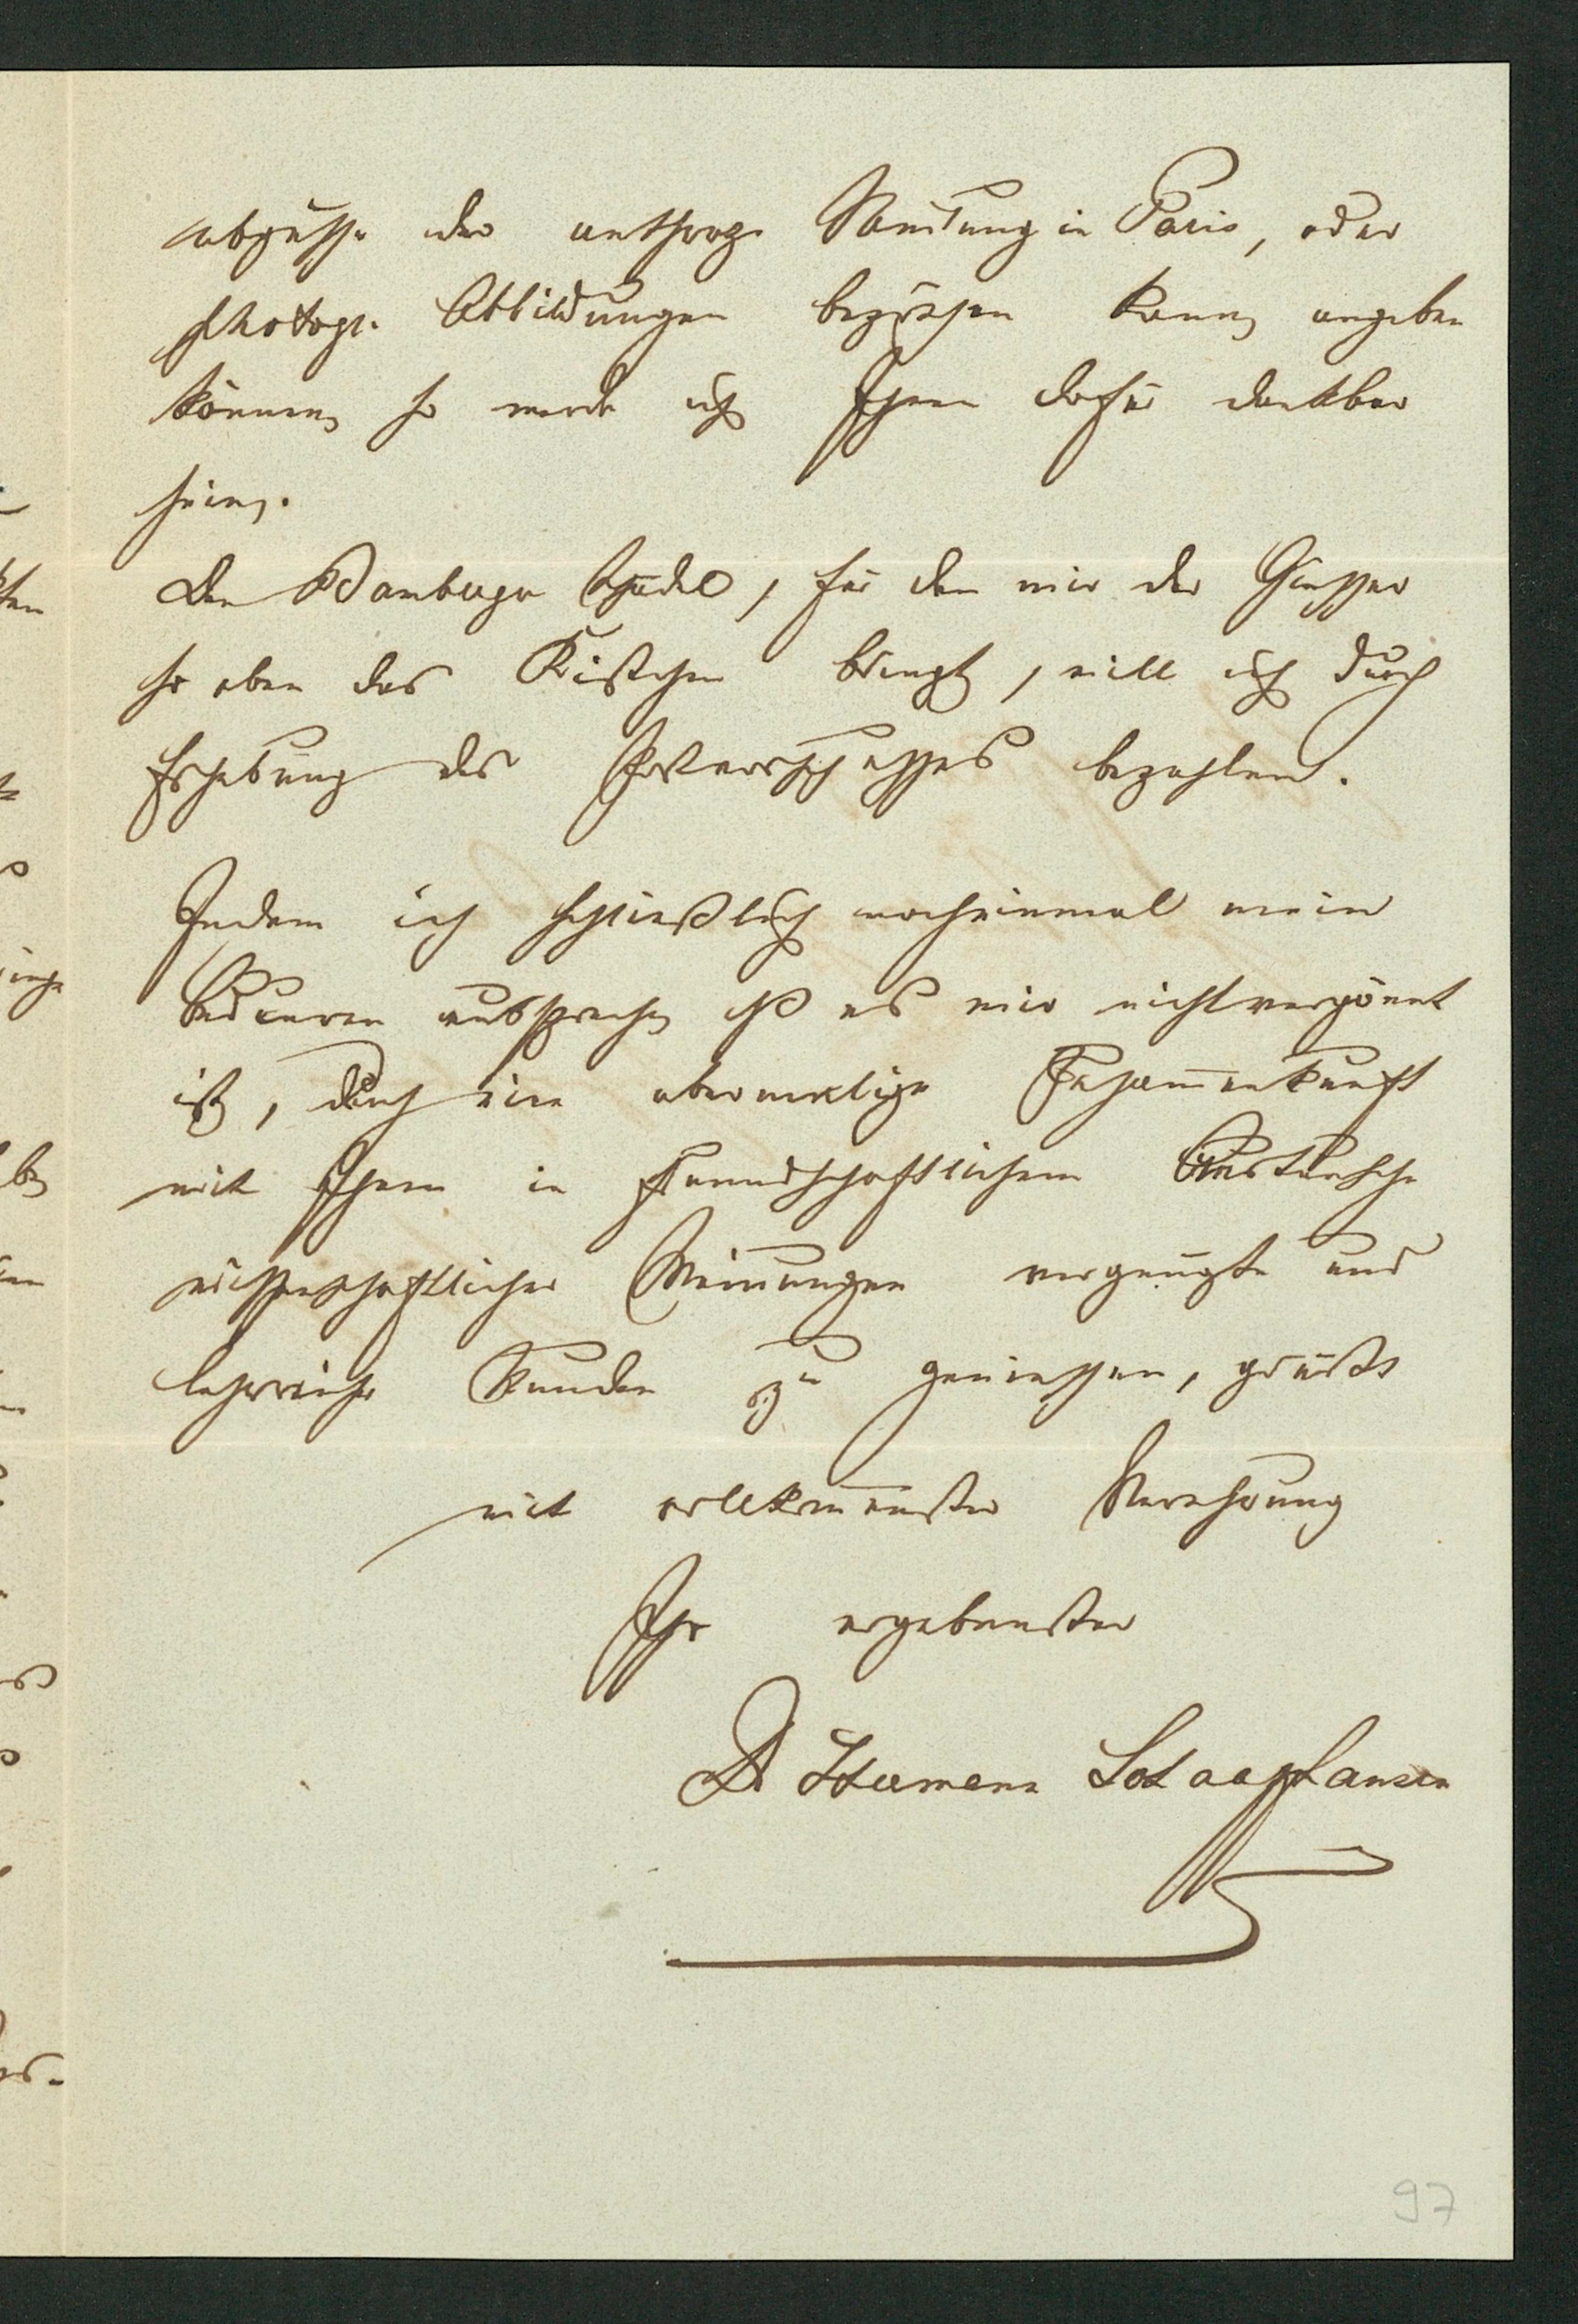 abgüsse der anthrop. Samlung in Paris, oder
photogr. Abbildungen beziehen kann, angeben
können, so werde ich Ihnen dafür dankbar
sein.
Den Bamberger Schädel, für den mir der Giesser
so eben das Kistchen bringt, will ich durch
Erhebung des Postvorschusses bezahlen.
Indem ich schließlich noch einmal mein
Bedauern ausspreche, dß es mir nicht vergönnt
ist, durch eine abermalige Zusam̅enkunft
mit Ihnen in freundschaftlichem Austausche
wissenschaftlicher Meinungen vergnügte und
lehrreiche Stunden zu geniessen, grüßt
mit vollkom̅enster Verehrung
Ihr ergebenster
Dr Hermann Schaaffhausen
97